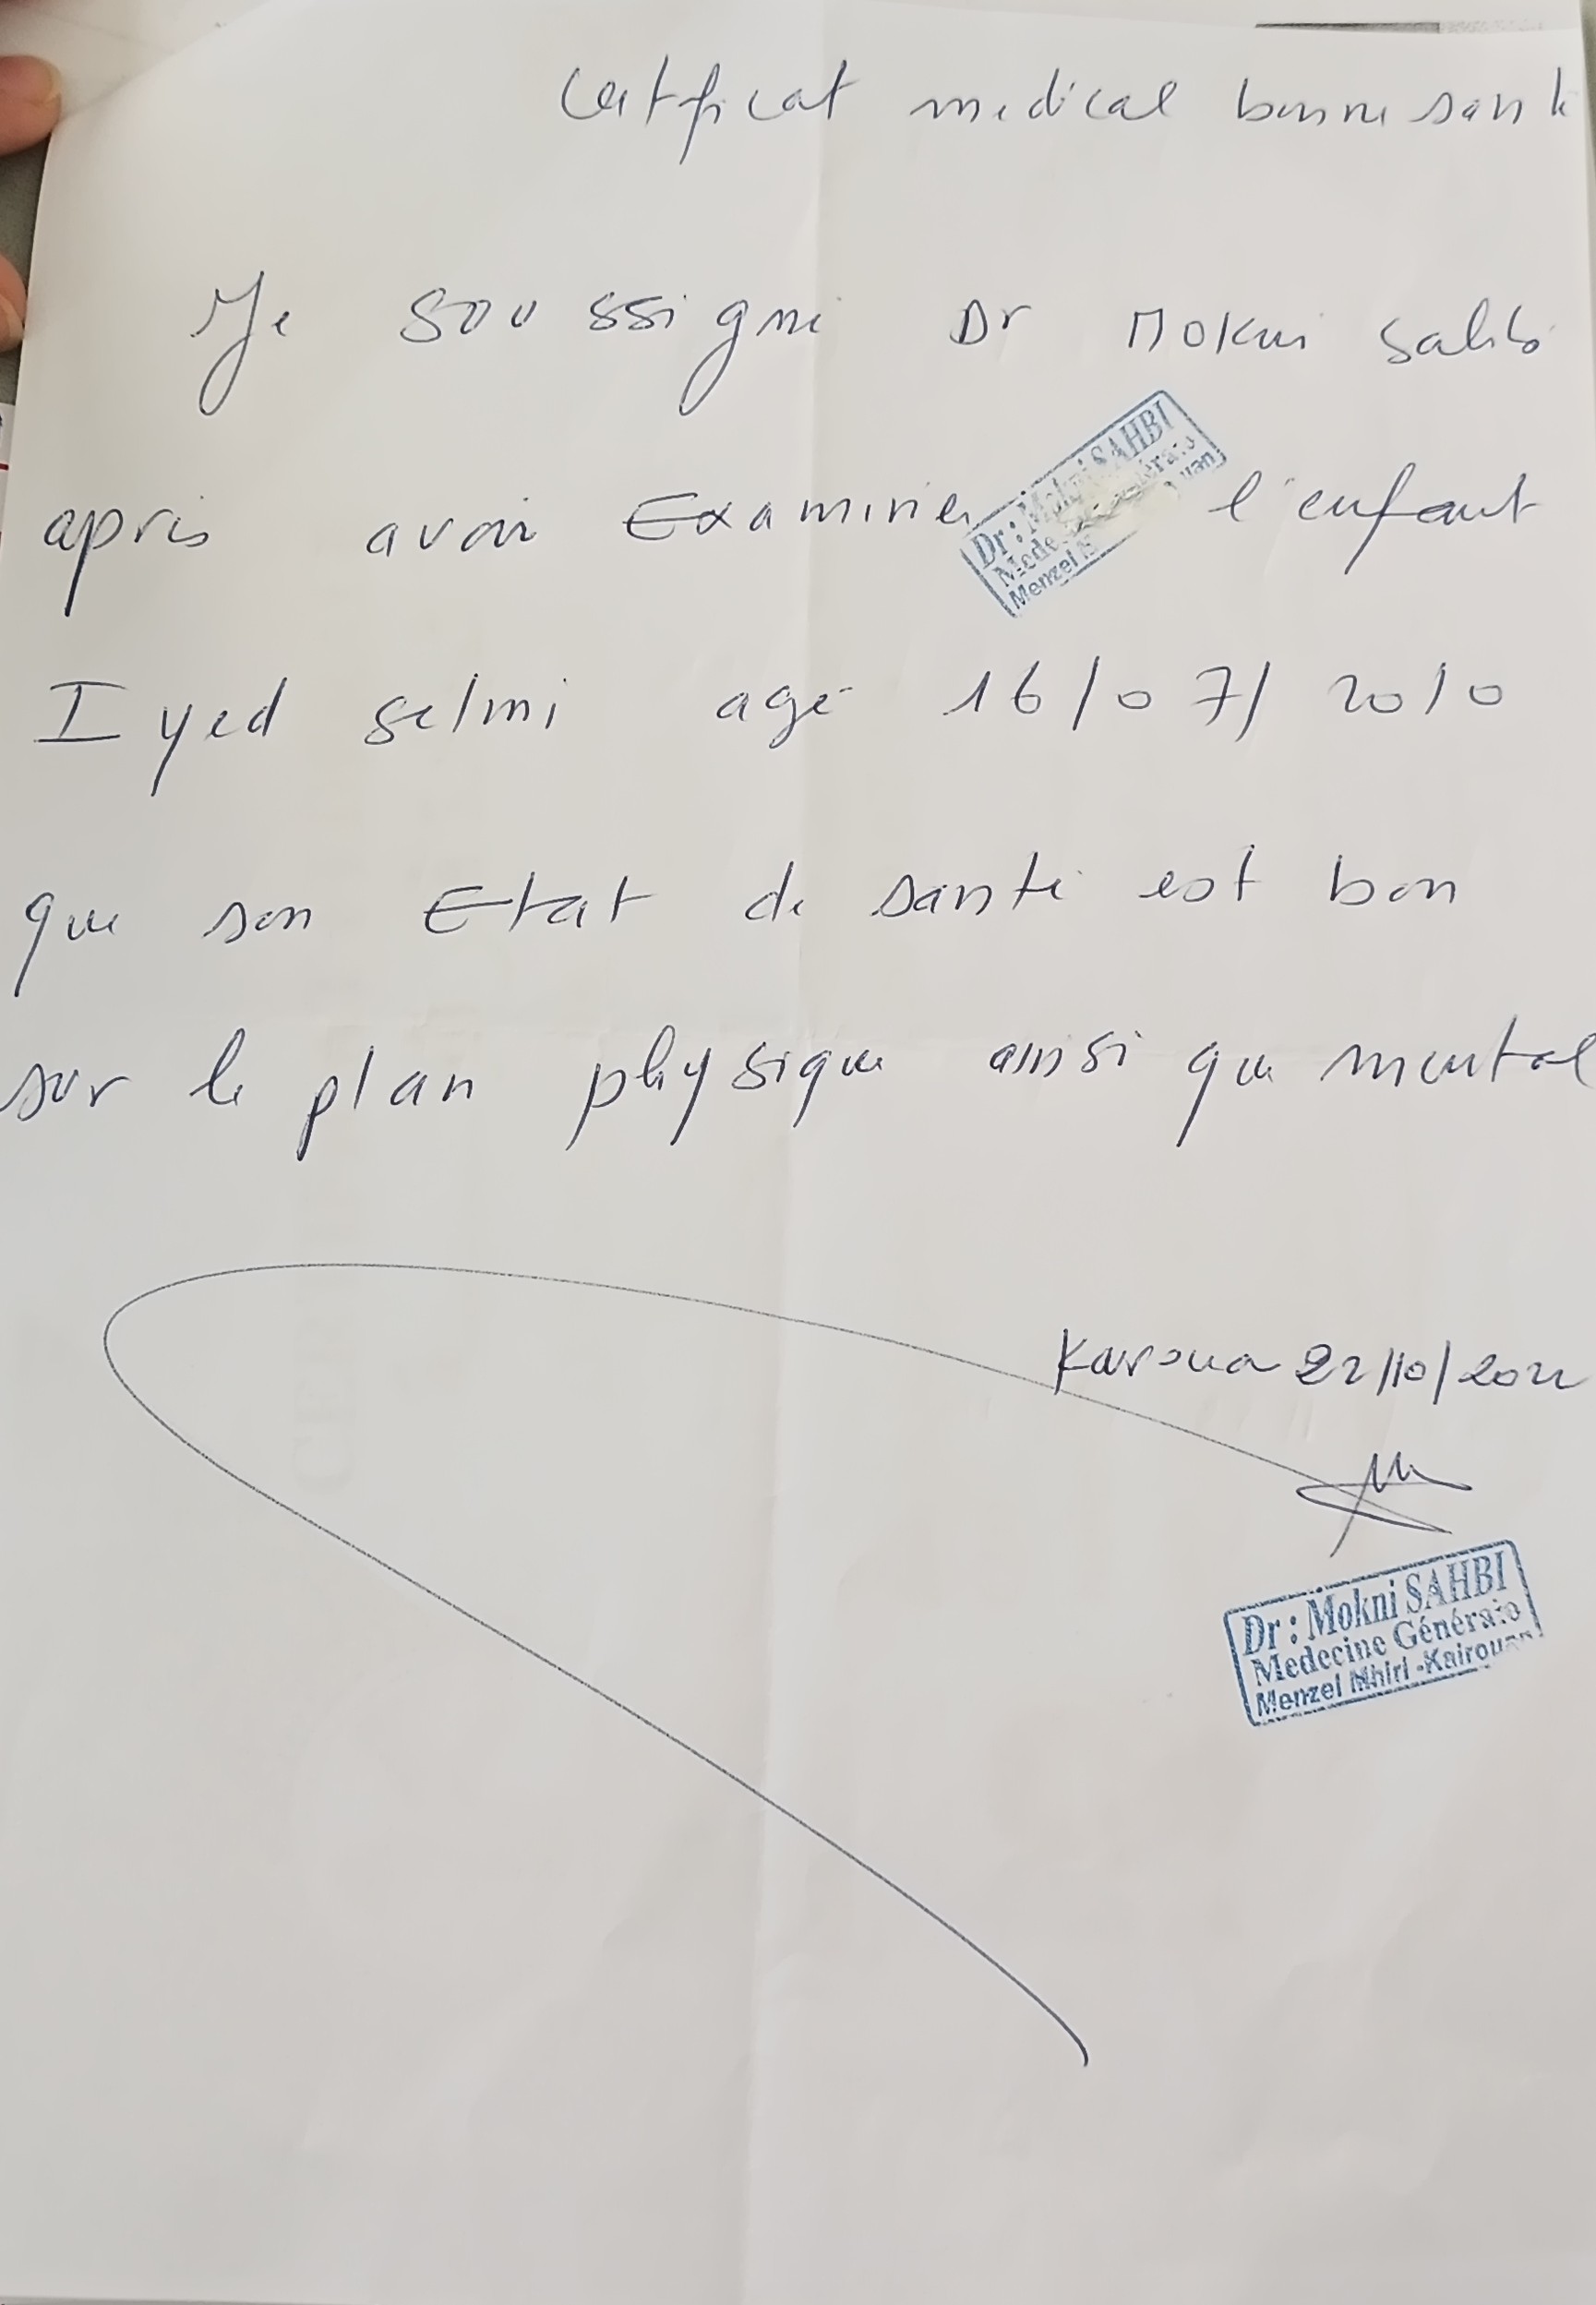 Certificat medical bonne santé
Je soussigné Dr Mokni Sahbi
après avoir Examiner l'enfant
Dr : Mokni SAHBI
Iyed selmi agé 16/07/2010
que son Etat de santé est bon
sur le plan physique ainsi que mental
Karoua 22/10/2022
Dr : Mokni SAHBI
Medecine Générale
Menzel Mhiri - Kairouan